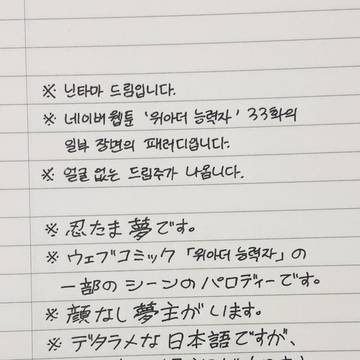 ※ 닌타마 드림입니다.
※ 네이버웹툰 '위아더 능력자' 33화의
일부 장면의 패러디입니다.
※ 얼굴 없는 드림주가 나옵니다.
※ 忍たま夢です。
※ ウェブコミック「위아더 능력자」の
一部のシーンのパロディーです。
※ 顔なし夢主がいます。
※ デタラメな日本語ですが、